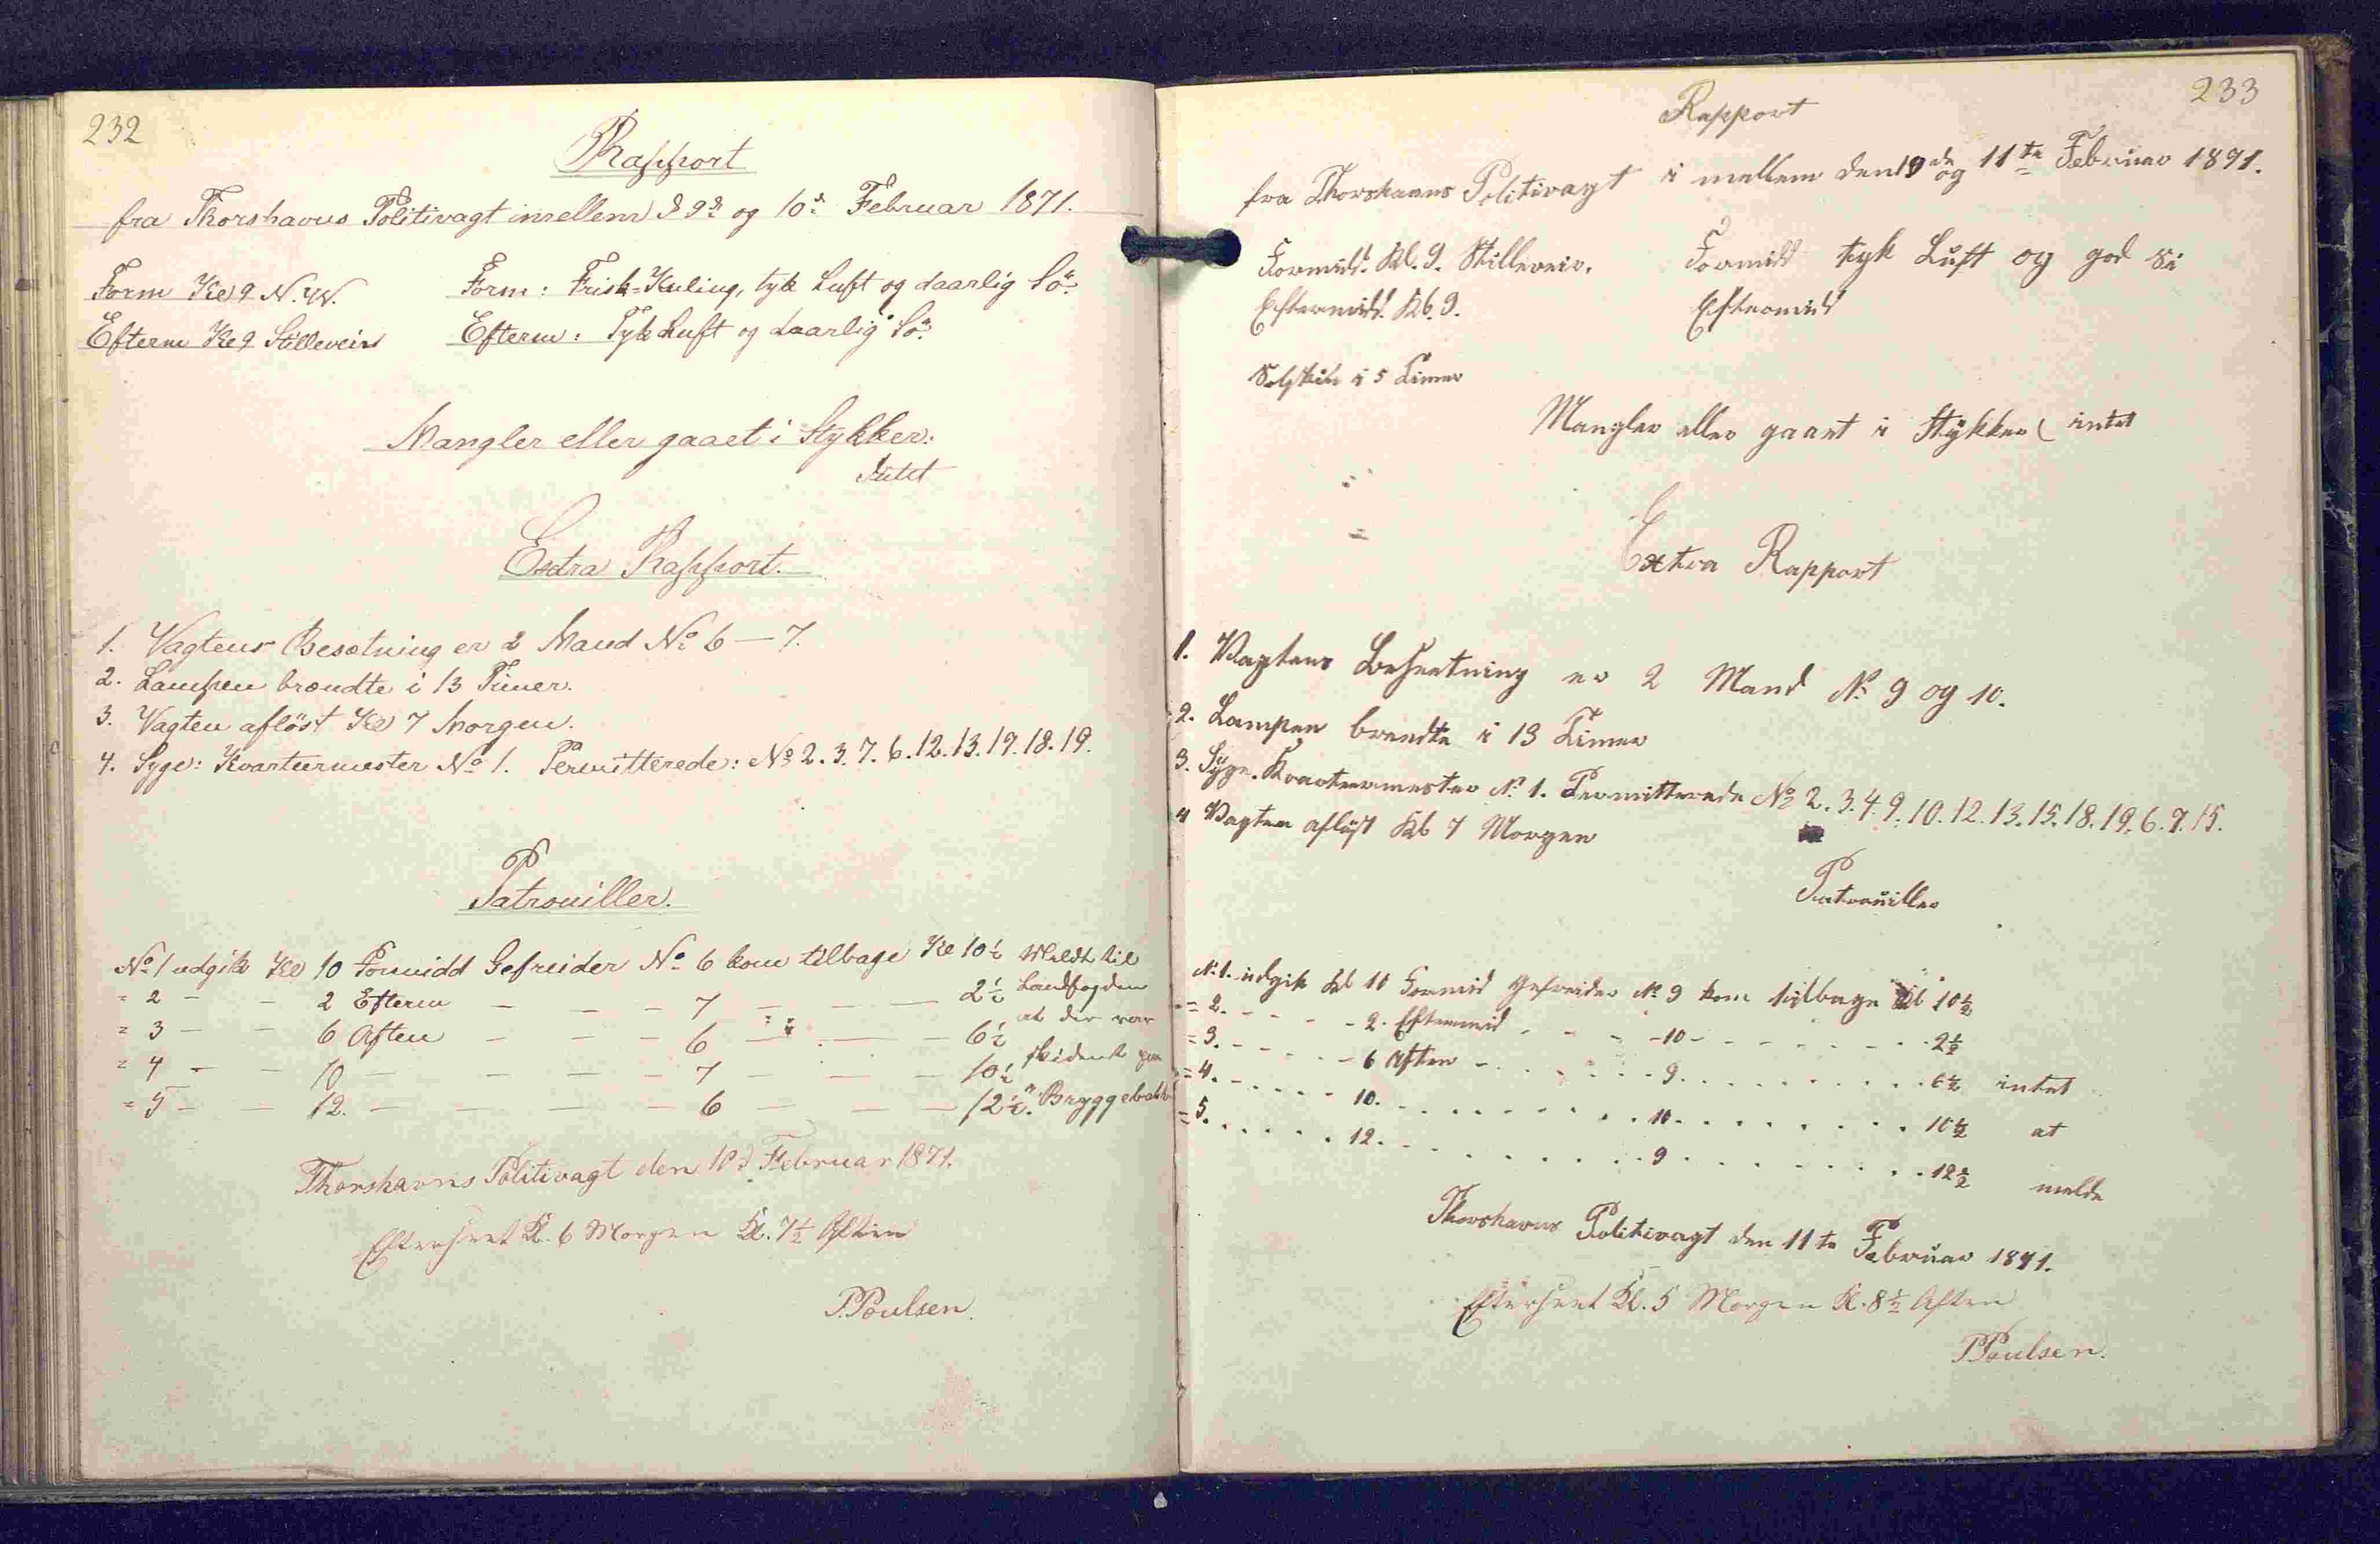 232
Rapport
fra Thorshavns Politivagt imellem d 9d og 10d Februar 1871.
Form Kl 9 N.W. Form: Frisk-Kuling, tyk Luft og daarlig Sö.
Efterm Kl 9 Stilleveir Efterm: Tyk Luft og daarlig Sö.
Mangler eller gaaet i Stykker:
Intet
Extra Rapport.
1. Vagtens Besætning er 2 Mand No 6 — 7.
2. Lampen brændte i 13 Timer.
3. Vagten aflöst Kl 7 Morgen.
4. Syge: Kvarteermester No 1. Permitterede: No 2. 3. 7. 6. 12. 13. 17. 18. 19.
Patrouiller.
No 1 udgik Kl 10 Formidd Gefreider No 6 kom tilbage Kl 10½ Meldt til
= 2 — — 2 Efterm — — — 7 — — — 2½ Landfogden
= 3 — — 6 Aften — — — 6 — — — 6½ at der var
= 4 — — 10 — — — — 7 — — — 10½ skident paa
= 5 — — 12. — — — — 6 — — — 12½. Bryggebakken
Thorshavns Politivagt den 10d Februar 1871.
Efterseet Kl. 6 Morgen Kl. 7½ Aften
P. Poulsen.
233
Rapport
fra Thorshavns Politivagt i mellem den 10de og 11te Februar 1871.
Formidd. Kl. 9. Stilleveir. Formidd tyk Luft og god Sö
Eftermidd. Kl. 9. Eftermidd
Solskin i 5 Timer
Mangler eller gaaet i Stykker intet
Extra Rapport
1. Vagtens Besætning er 2 Mand No 9 og 10.
2. Lampen brændte i 13 Timer
3. Syge. Kvarteermester No 1. Permitterede No 2. 3. 4. 9. 10. 12. 13. 15. 18. 19. 6. 7. 15.
4 Vagten aflöst Kl 7 Morgen
Patrouiller
No. 1. udgik Kl 10 Formid Gefreider No 9 kom tilbage Kl 10½
= 2. - - - - 2. Eftermid - - - 10 - - - - - 2½
= 3. - - - - 6 Aften - - - - 9. - - - - - 6½ intet
= 4. - - - - 10. - - - - - 10. - - - - - 10½ at
= 5. - - - - 12. - - - - - 9 - - - - - 12½ melde
Thorshavns Politivagt den 11te Februar 1871.
Efterseet Kl. 5 Morgen Kl. 8½ Aften
P. Poulsen.